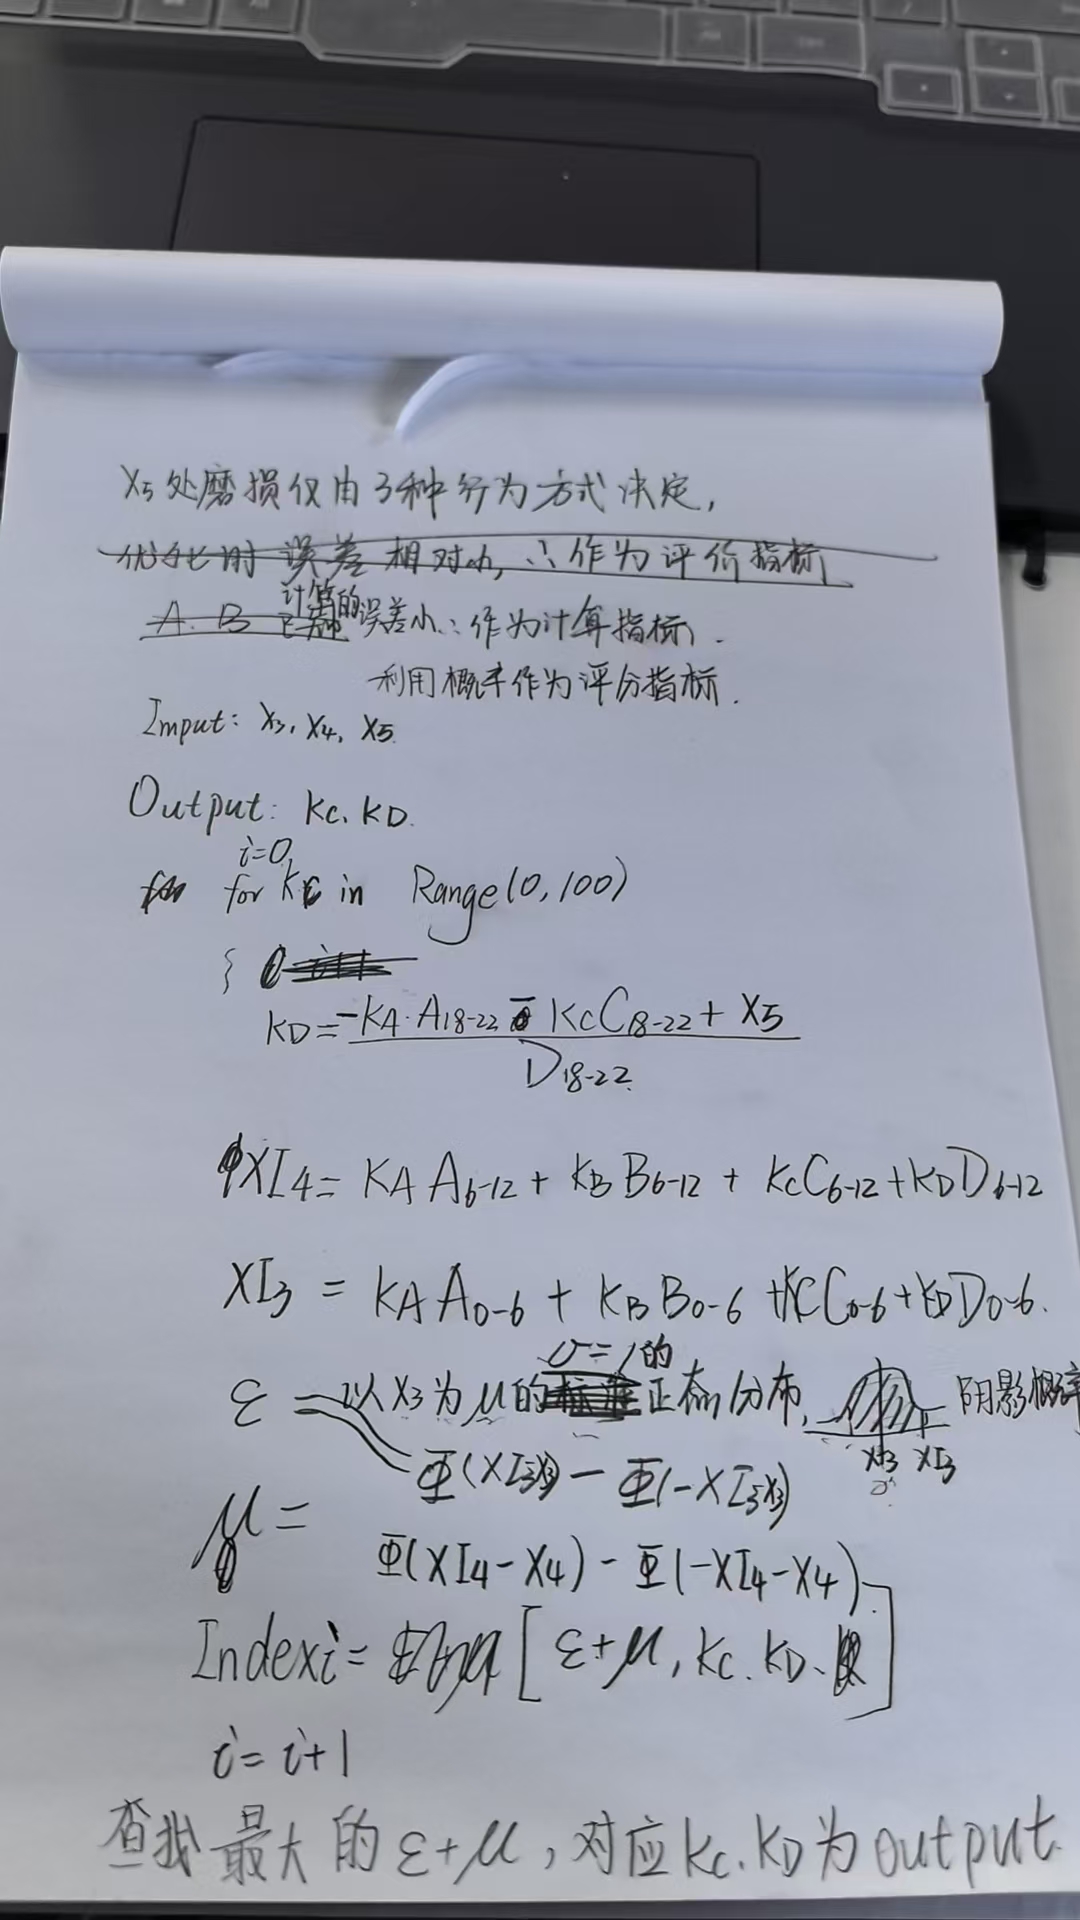 X5处磨损仅由3种行为方式决定,
优化时误差相对小, ∴作为评价指标
A. B 已知 计算的误差小∴作为计算指标.
利用概率作为评分指标.
Input: X3, X4, X5.
Output: Kc, KD.
i=0,
for Kc in Range(0,100)
{
KD = (-KA·A18-22 - KcC18-22 + X5) / D18-22
XI4 = KAA6-12 + KBB6-12 + KcC6-12 + KDD6-12
XI3 = KAA0-6 + KBB0-6 + KCC0-6 + KDD0-6.
σ=1的
ε = 以X3为μ的正态分布, 阴影概率
X3 XI3
Φ(XI3-X3) - Φ(-XI3-X3)
μ =
Φ(XI4-X4) - Φ(-XI4-X4).
Indexi = [ε+μ, Kc. KD. ]
i = i+1
查找最大的ε+μ, 对应Kc. KD为output.